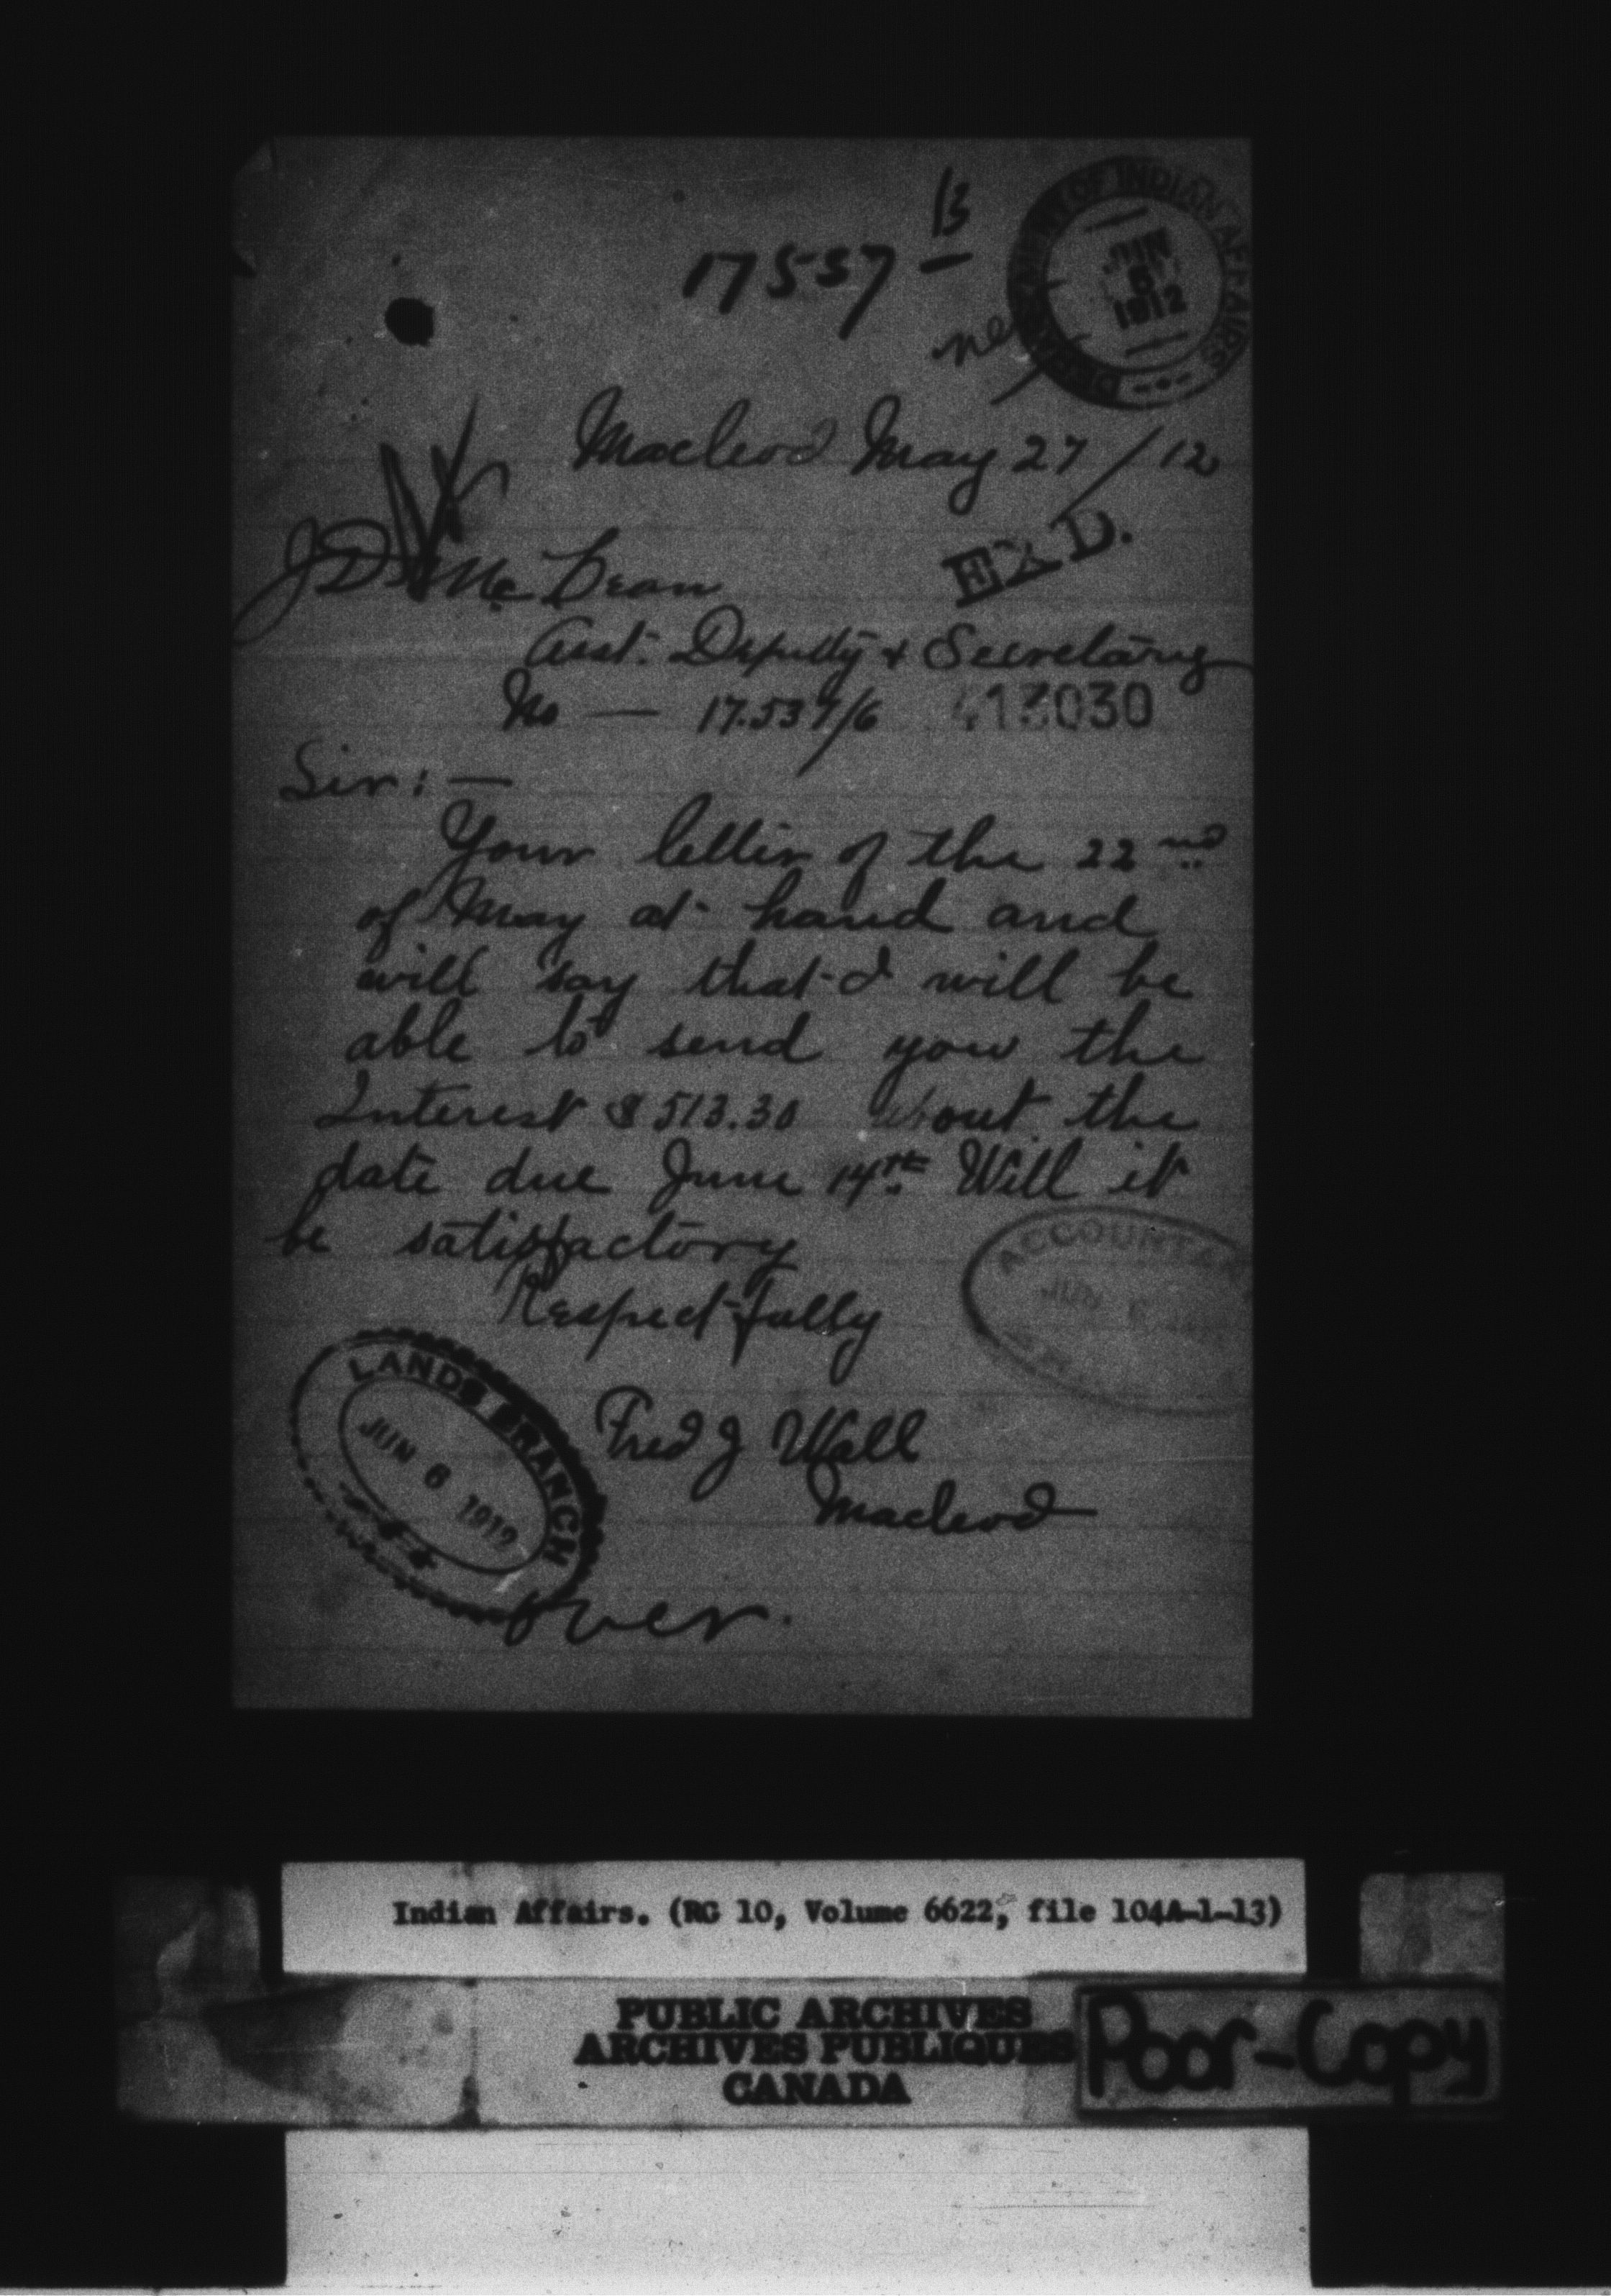 13
17537 -
DEPARTMENT OF INDIAN AFFAIRS
JUN
6
1912
Macleod May 27/12
EX'D.
J D McLean
Asst. Deputy & Secretary
No — 17.537/6 413030
Sir: —
Your letter of the 22nd
of May at hand and
will say that I will be
able to send you the
Interest $513.30 about the
date due June 14th Will it
be satisfactory
Respectfully
ACCOUNTAN
JUN 6
Fred J Wall
Macleod
LANDS BRANCH
JUN 6 1912
over.
Indian Affairs. (RG 10, Volume 6622, file 104A-1-13)
PUBLIC ARCHIVES
ARCHIVES PUBLIQUES
CANADA
Poor-Copy